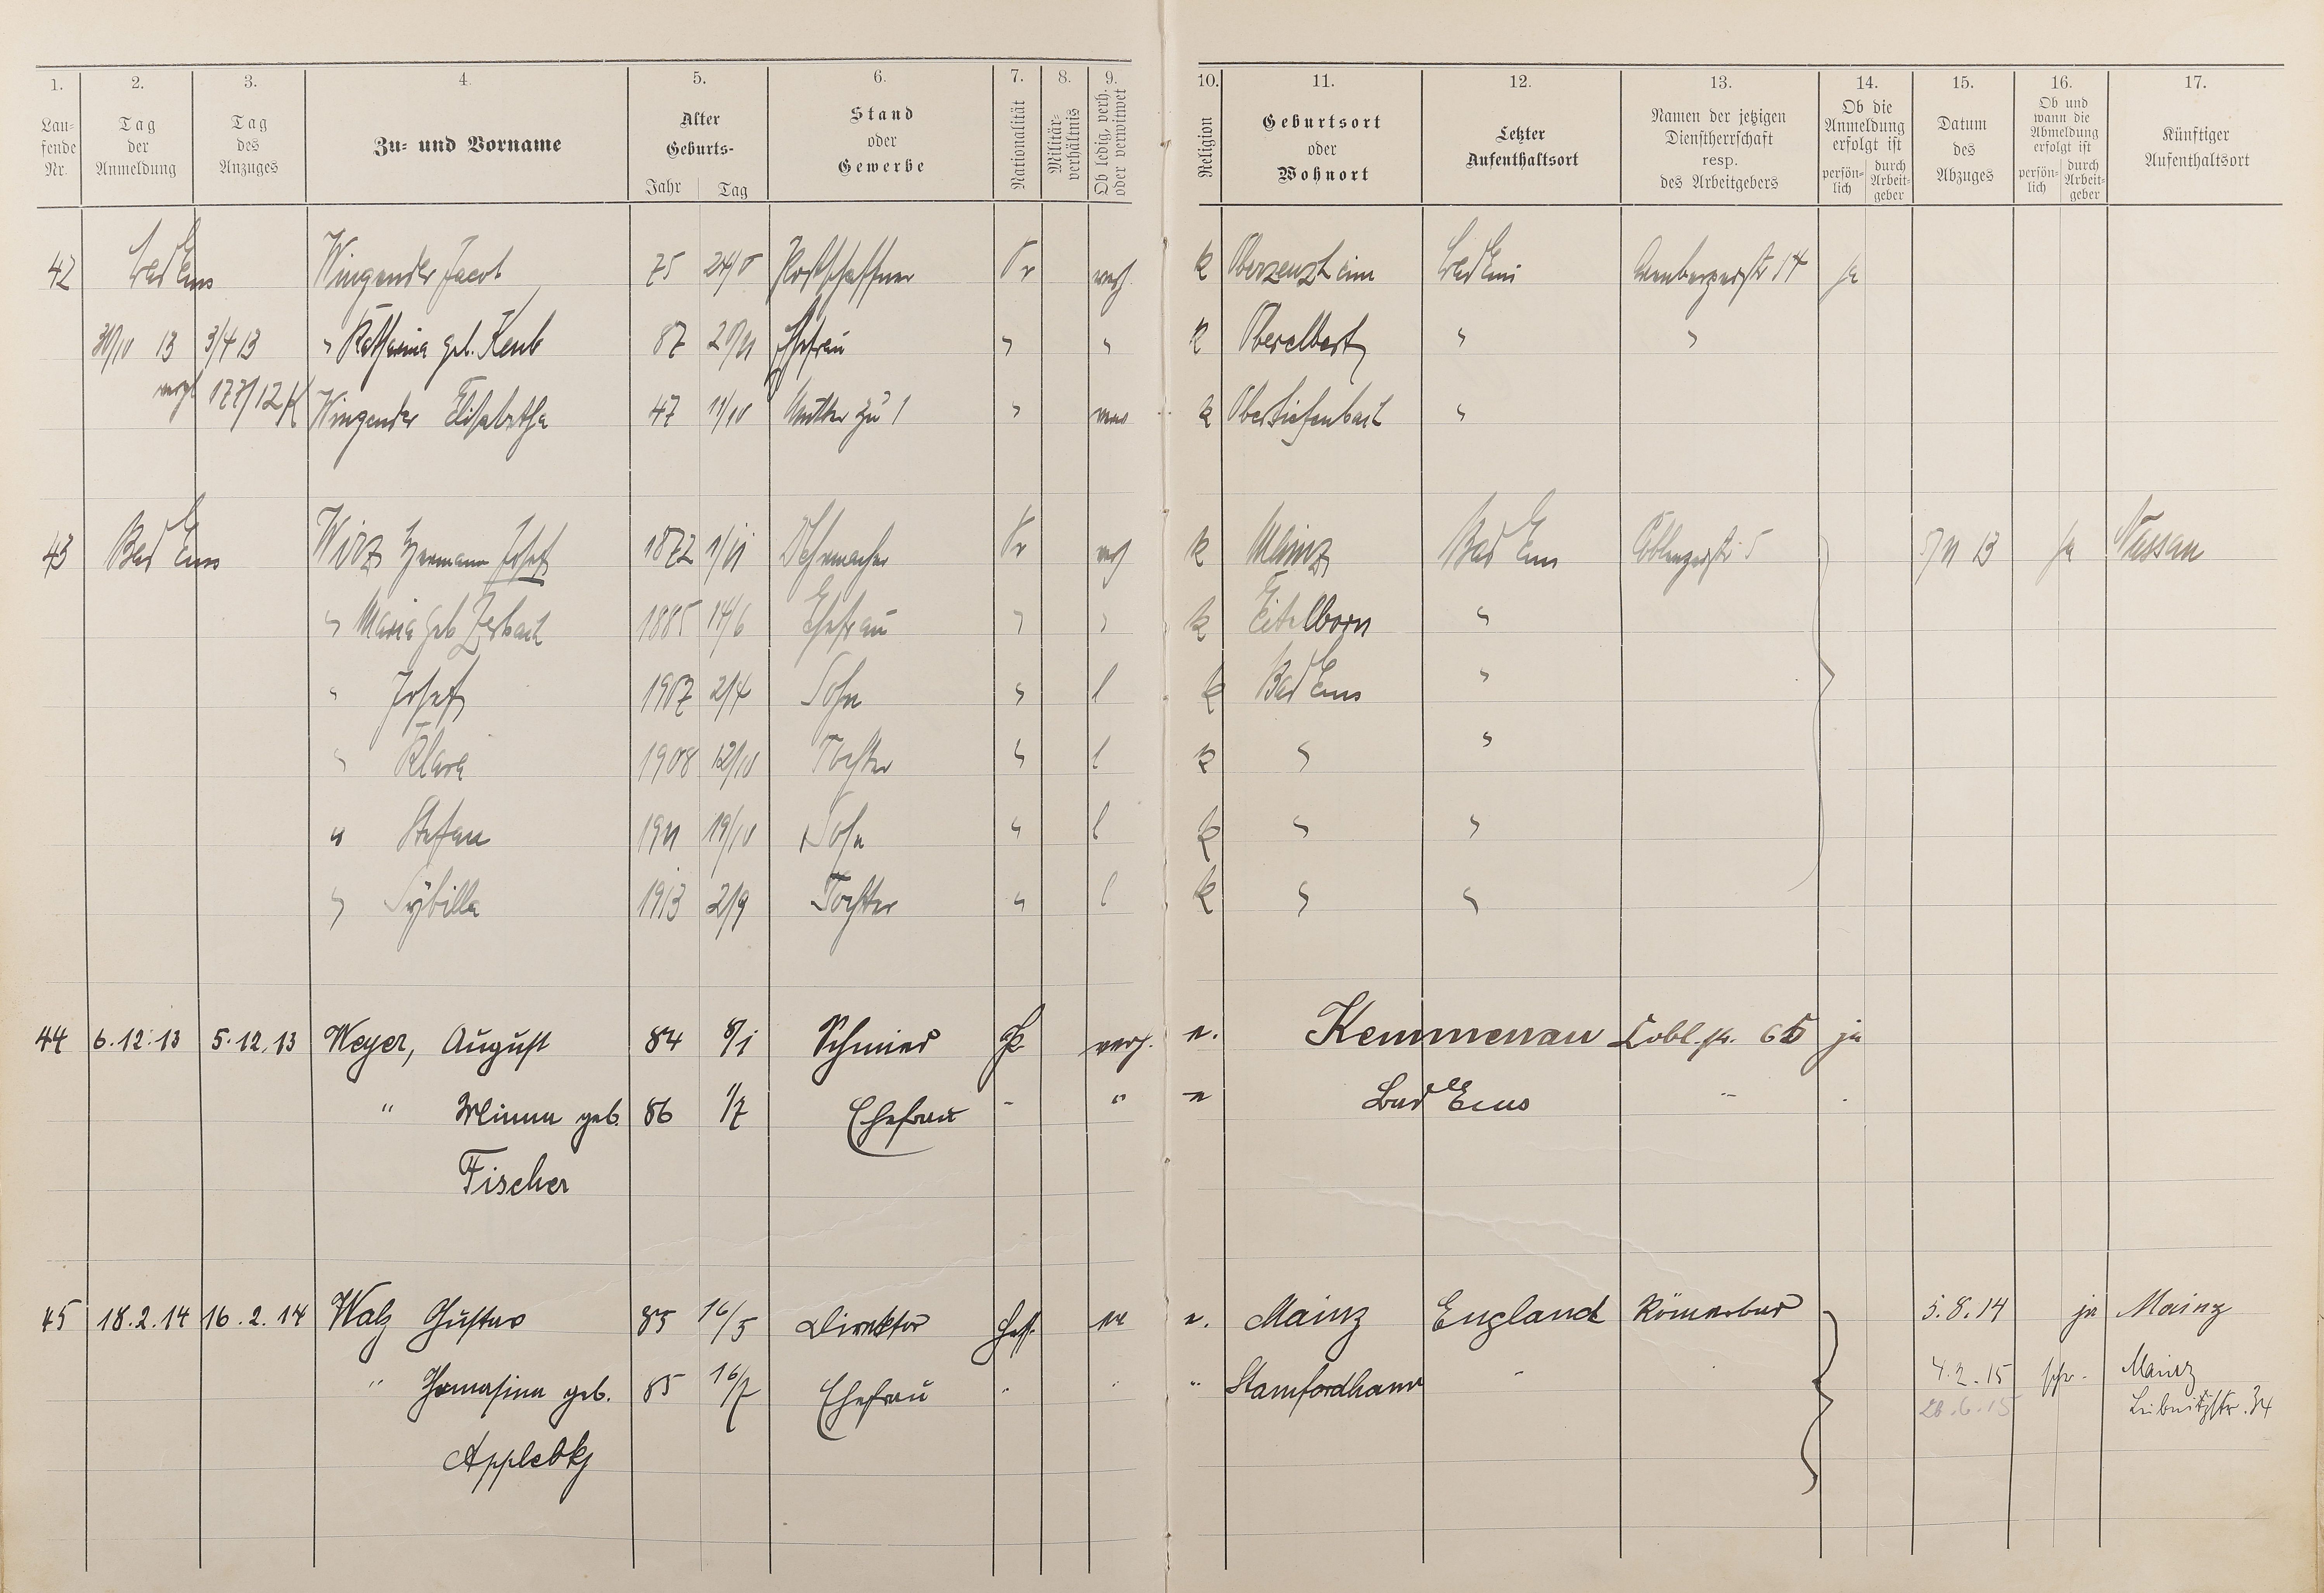 1. 2. 3. 4. 5. 6. 7. 8. 9. 10. 11. 12. 13. 14. 15. 16. 17.
Lau=fende Nr. Tag der Anmeldung Tag des Anzuges Zu= und Vorname Alter Geburts- Jahr Tag Stand oder Gewerbe Nationalität Militär=verhältnis Ob ledig, verh. oder verwitwet Religion Geburtsort oder Wohnort Letzter Aufenthaltsort Namen der jetzigen Dienstherrschaft resp. des Arbeitgebers Ob die Anmeldung erfolgt ist persön=lich durch Arbeit=geber Datum des Abzuges Ob und wann die Abmeldung erfolgt ist persön=lich durch Arbeit=geber Künftiger Aufenthaltsort
42 Bad Ems Wingender Jacob 75 Postschaffner Pr verh k Oberzeuzheim Bad Ems 14 ja
13 3/4 13 " Katharina geb. 87 Ehefrau " " k Oberelbert " "
177/12 Wingender Elisabetha 47 11/10 Mutter zu 1 " k Obertiefenbach "
43 Bad Ems Wirz Hermann Josef 1872 Uhrmacher Pr verh k Mainz Bad Ems Coblenzerstr 5 13 ja Nassau
" Maria geb Zerbach 1885 14/6 Ehefrau " " k Eitelborn "
" Josef 1907 2/4 Sohn " l k Bad Ems "
" Klara 1908 12/10 Tochter " l k " "
" Stefan 1911 19/10 Sohn " l k " "
" Sybilla 1913 2/9 Tochter " l k " "
44 6.12.13 5.12.13 Weyer, August 84 8/1 Schmied verh. e. Kemmenau Cobl.str. 65 ja
" Minna geb. 86 1/7 Ehefrau " " e Bad Ems "
Fischer
45 18.2.14 16.2.14 Walz Gustav 85 16/5 Direktor Hess. e. Mainz England Römerbad 5.8.14 ja Mainz
" Thomasina geb. 85 16/7 Ehefrau " " " Stamfordham " 4.2.15 schr. Mainz
Appleby 26.6.15 Leibnitzstr. 34